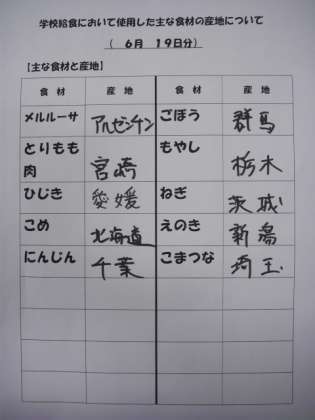 学校給食において使用した主な食材の産地について
（　6月　19日分）
【主な食材と産地】
食　材　産　地　食　材　産　地
メルルーサ　アルゼンチン　ごぼう　群馬
とりもも肉　宮崎　もやし　栃木
ひじき　愛媛　ねぎ　茨城
こめ　北海道　えのき　新潟
にんじん　千葉　こまつな　埼玉